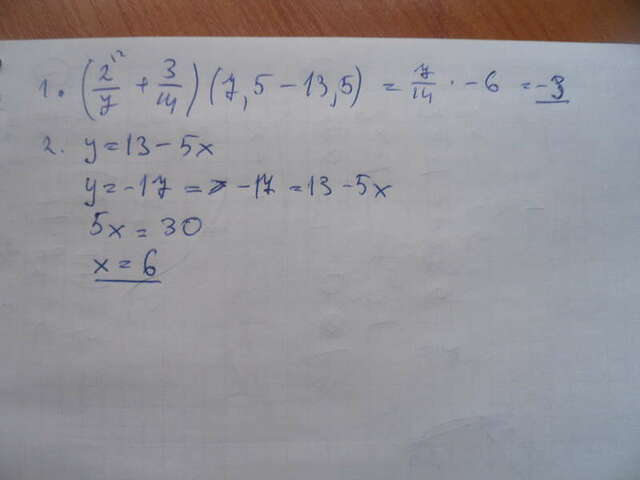 1. (2^{\2}/7 + 3/14) (7,5 - 13,5) = 7/14 · -6 = -3
2. y = 13 - 5x
y = -17 => -17 = 13 - 5x
5x = 30
x = 6